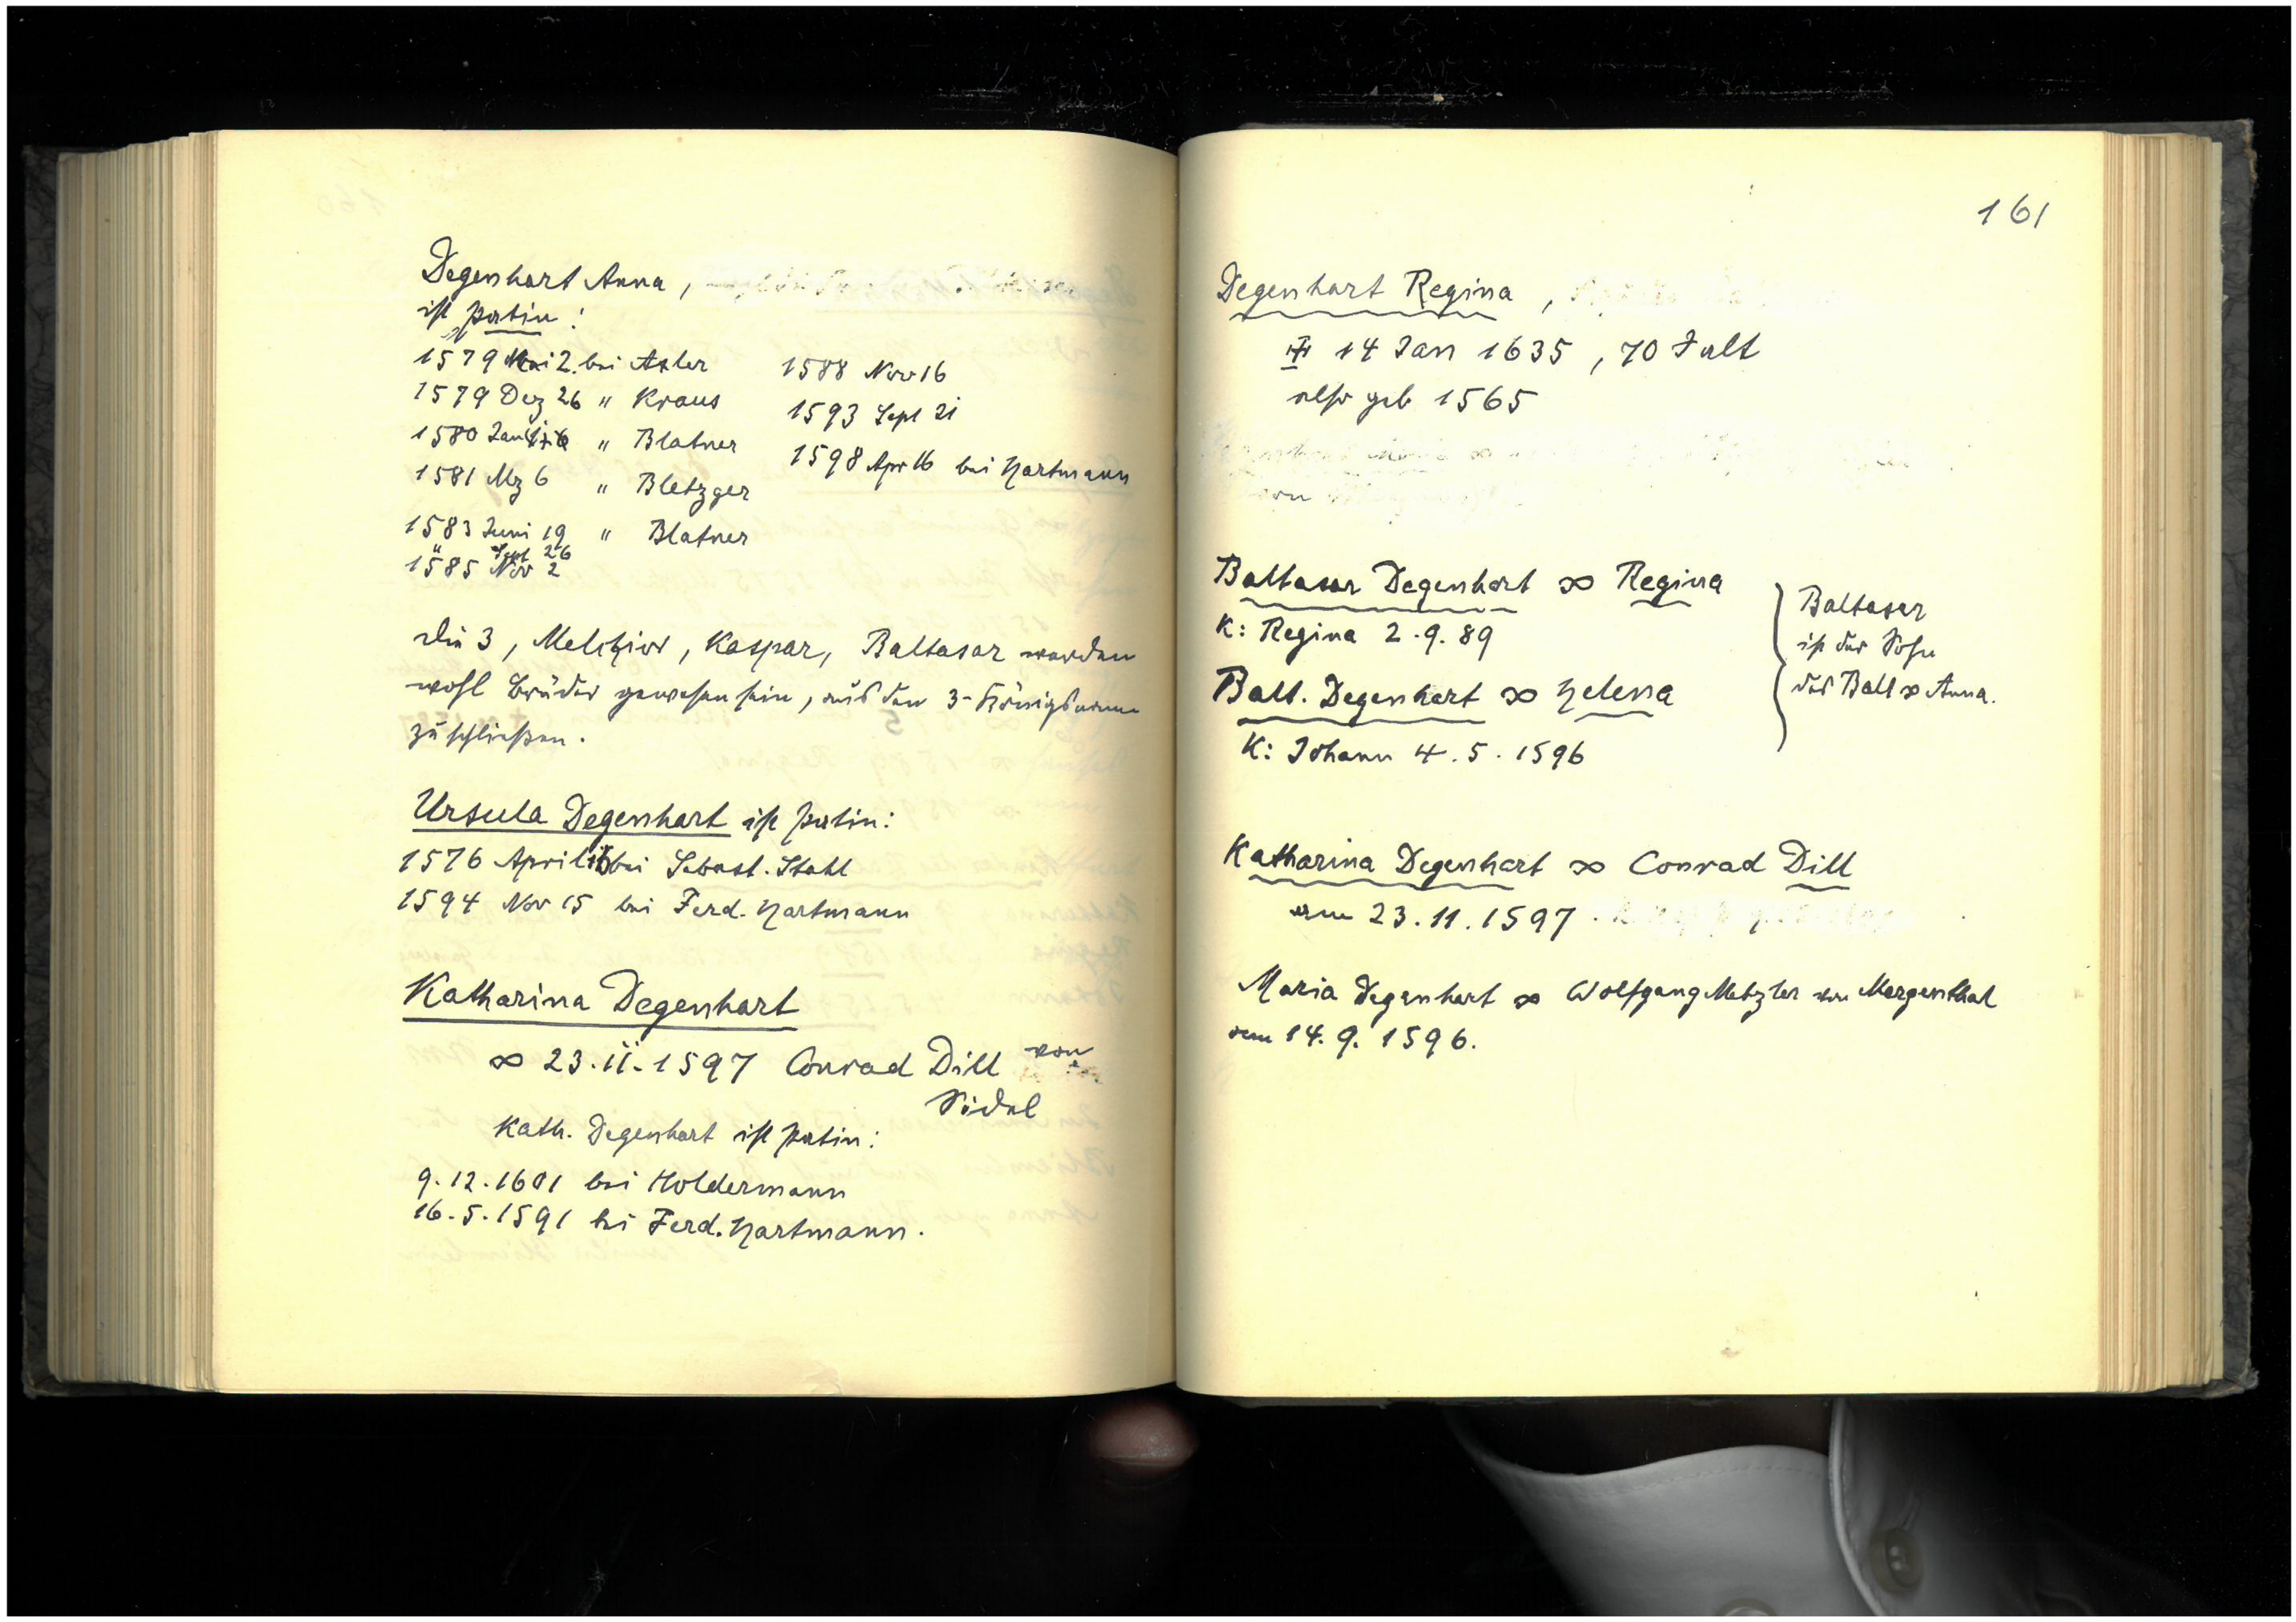 Degenhart Anna,
ist Patin:
1579 Mai 2. bei Axler
1579 Dez 26 " Kraus
1580 Jan " Blatner
1581 Mz 6 " Bletzger
1583 Juni 19 " Blatner
" Sept 26
1585 Nov 2
1588 Nov 16
1593 Sept 21
1598 Apr 16 bei Hartmann
Die 3, Melchior, Kaspar, Baltasar werden
wohl Brüder gewesen sein, aus den 3-Königsname
zu schließen.
Ursula Degenhart ist Patin:
1576 April bei Sebast. Stahl
1594 Nov 15 bei Ferd. Hartmann
Katharina Degenhart
∞ 23.11.1597 Conrad Dill von
Södel
Kath. Degenhart ist Patin:
9.12.1601 bei Holdermann
16.5.1591 bei Ferd. Hartmann.
161
Degenhart Regina,
14 Jan 1635, 70 J alt
also geb 1565
Baltasar Degenhart ∞ Regina
K: Regina 2.9.89
Balt. Degenhart ∞ Helena
K: Johann 4.5.1596
Baltasar
ist der Sohn
des Balt ∞ Anna.
Katharina Degenhart ∞ Conrad Dill
am 23.11.1597.
Maria Degenhart ∞ Wolfgang Metzler von Mergenthal
am 14.9.1596.